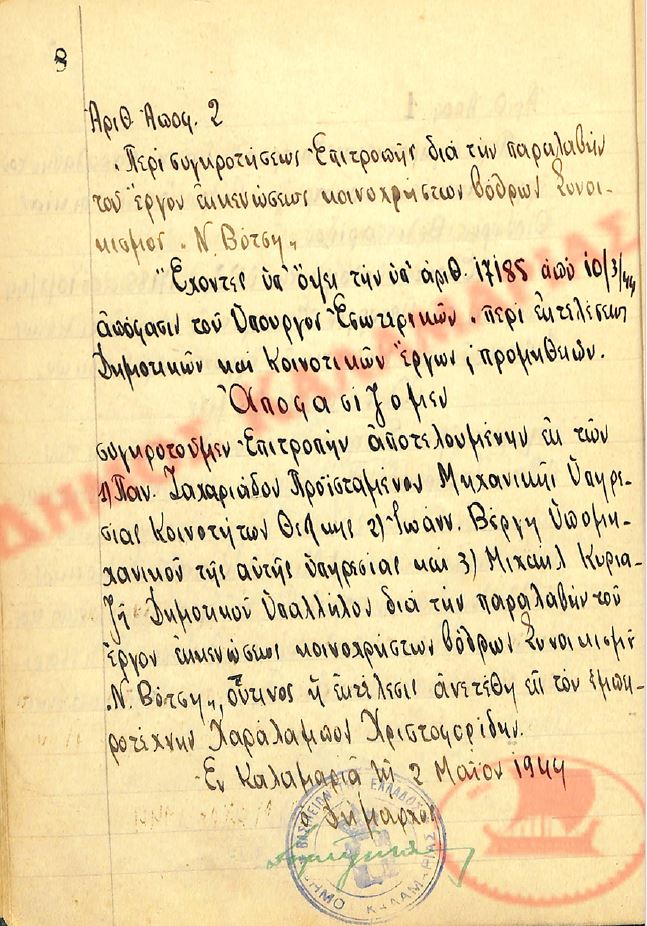 8
Αριθ Αποφ. 2
"Περί συγκροτήσεως Ἐπιτροπῆς διά τήν παραλαβήν
τοῦ ἔργου ἐκκενώσεως κοινοχρήστων βόθρων Συνοι-
κισμοῦ "Ν. Βότση„
Ἔχοντες ὑπ' ὄψει τήν ὑπ' ἀριθ. 17185 ἀπό 10/3/44
ἀπόφασιν τοῦ Ὑπουργοῦ Ἐσωτερικῶν "περί ἐκτελέσεως
Δημοτικῶν καί Κοινοτικῶν ἔργων, προμηθειῶν.
Ἀποφασίζομεν
συγκροτοῦμεν Ἐπιτροπήν ἀποτελουμένην ἐκ τῶν
1) Παν. Ζαχαριάδου Προϊσταμένου Μηχανικῆς Ὑπηρε-
σίας Κοινοτήτων Θεσ/κης 2) Ἰωάνν. Βέργη Ὑπομη-
χανικοῦ τῆς αὐτῆς ὑπηρεσίας καί 3) Μιχαήλ Κυρια-
ζῆ Δημοτικοῦ Ὑπαλλήλου διά τήν παραλαβήν τοῦ
ἔργου ἐκκενώσεως κοινοχρήστων βόθρων Συνοικισμοῦ
"Ν. Βότση„, οὗτινος ἡ ἐκτέλεσις ἀνετέθη εἰς τόν ἐμπει-
ροτέχνην Χαράλαμπον Χριστοφορίδην.
Ἐν Καλαμαριᾷ τῇ 2 Μαΐου 1944
ὁ Δήμαρχος
ΒΑΣΙΛΕΙΟΝ ΤΗΣ ΕΛΛΑΔΟΣ
ΔΗΜΟΣ ΚΑΛΑΜΑΡΙΑΣ
ΔΗΜΟΣ ΚΑΛΑΜΑΡΙΑΣ